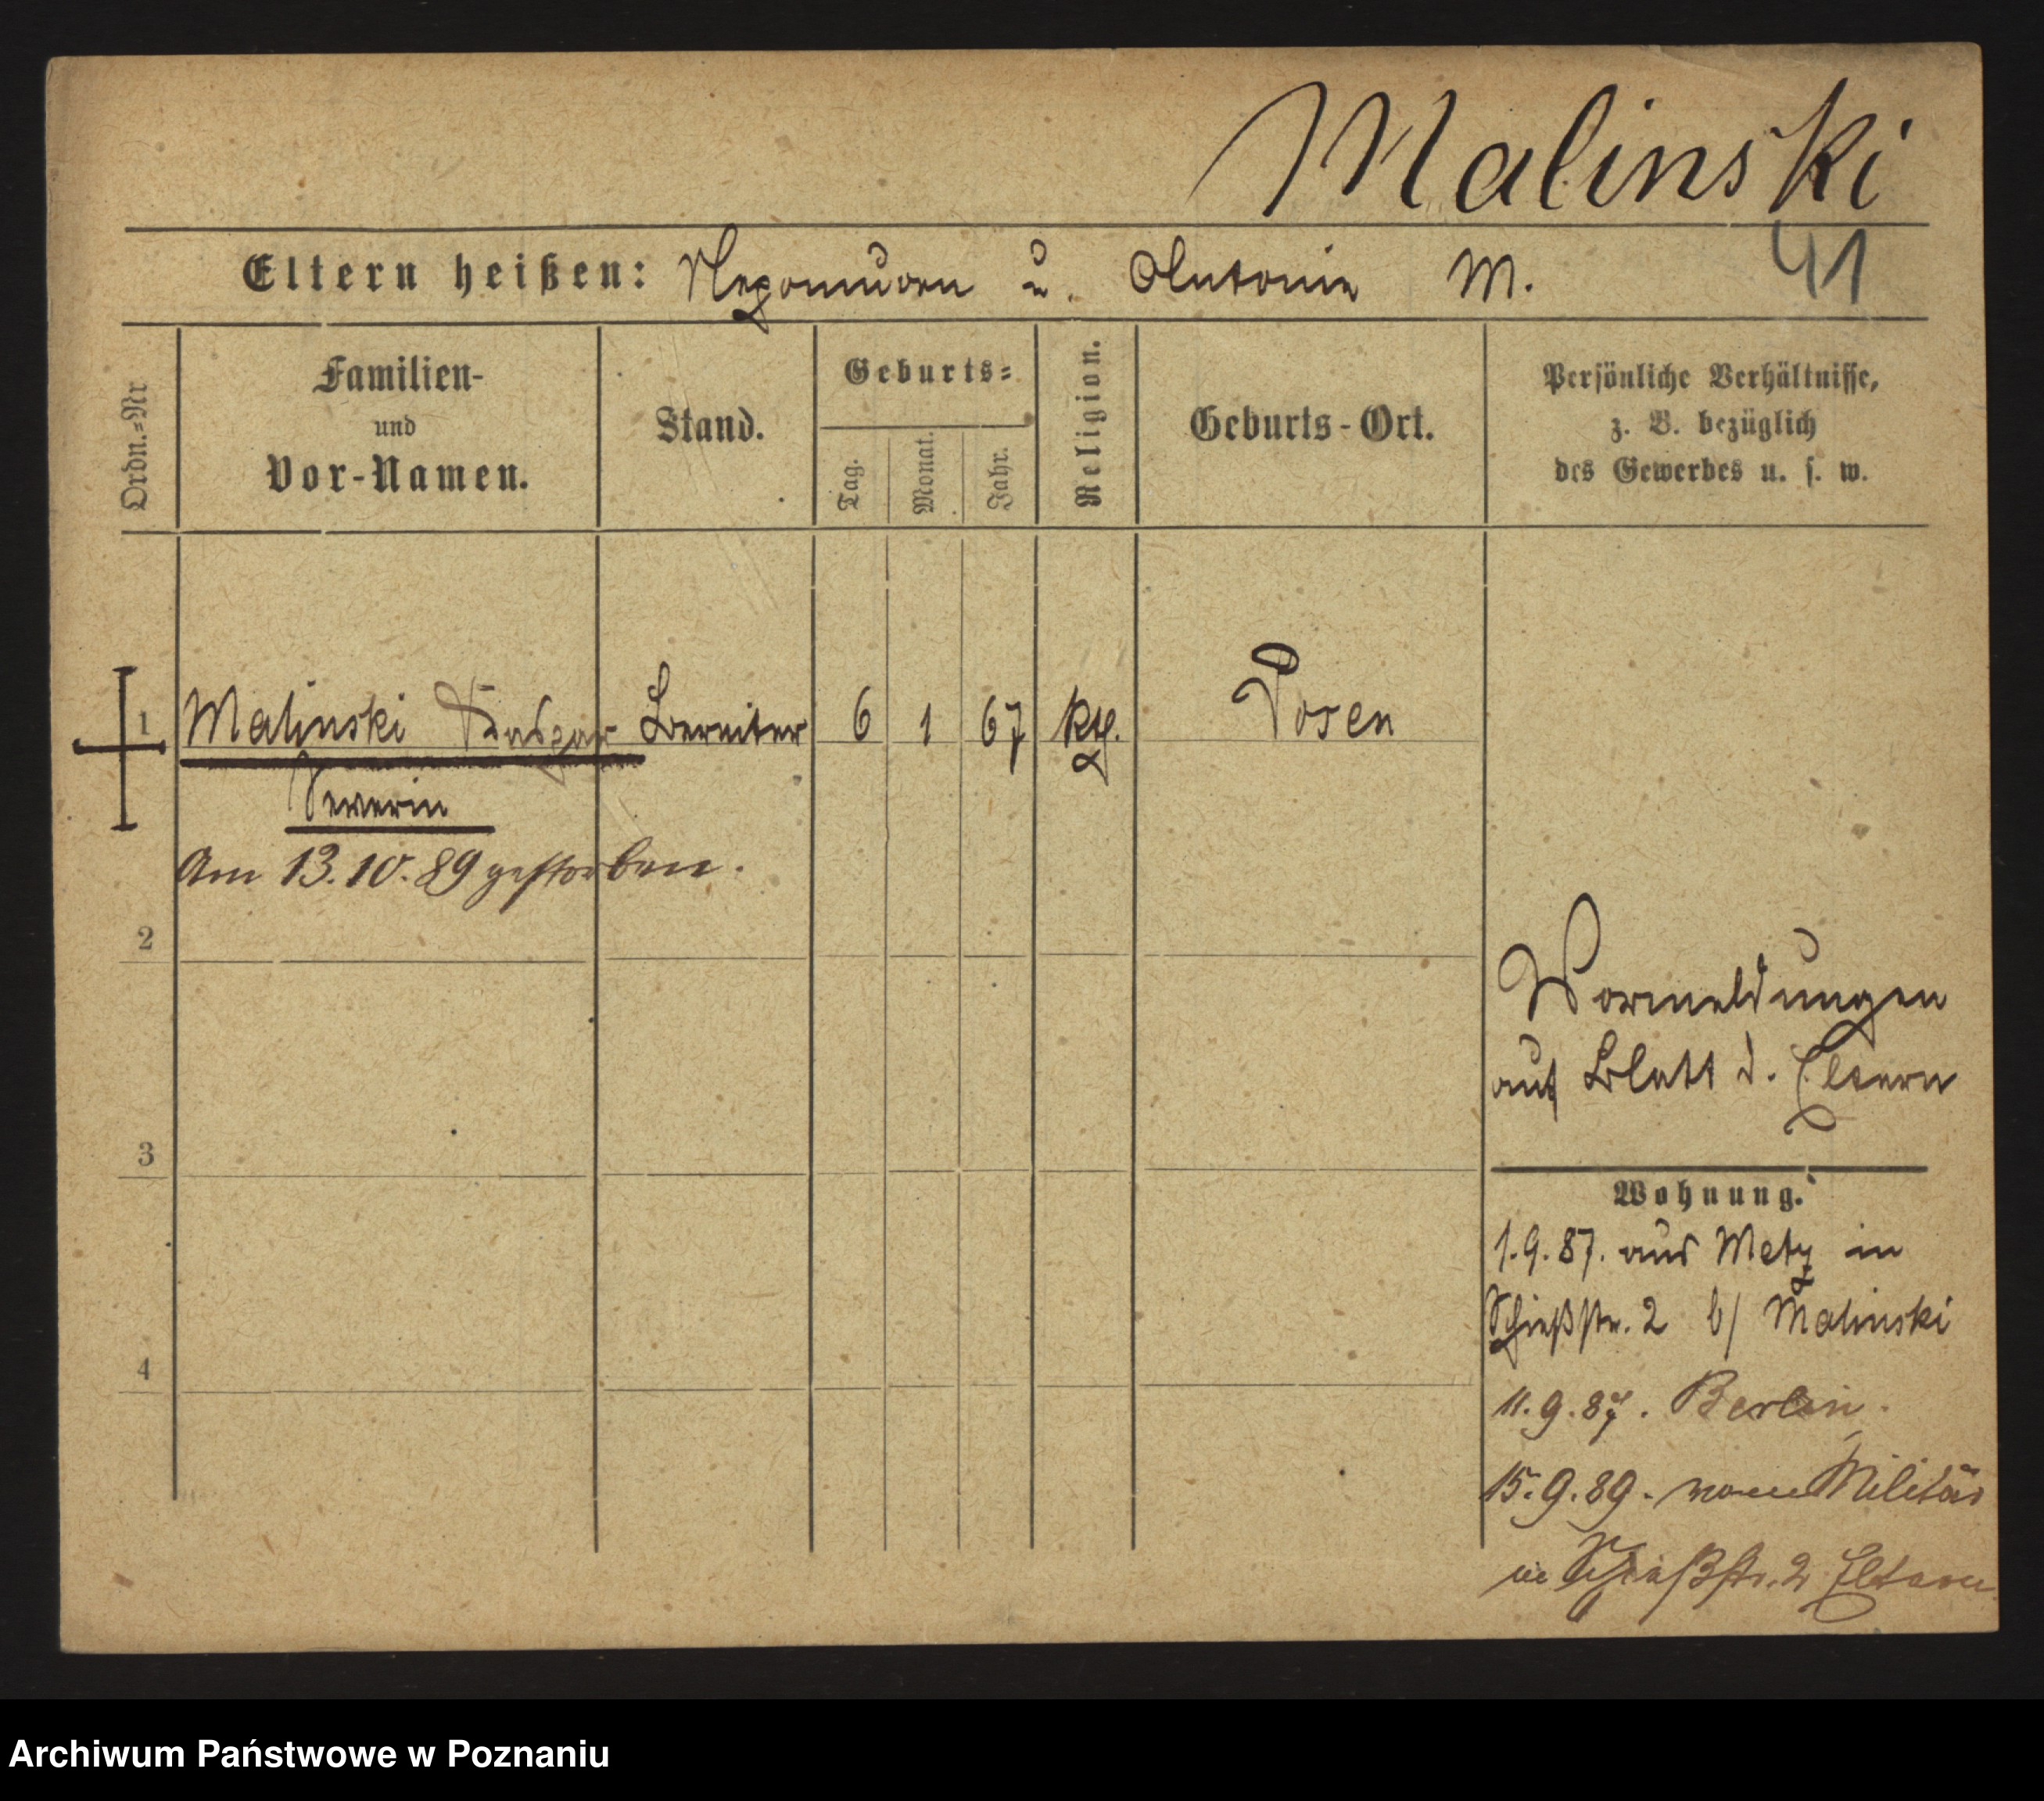 Malinski
Eltern heißen: Nepomucen u. Antonie M.
41
Ordn.-Nr
Familien-
und
Vor-Namen.
Stand.
Geburts-
Tag.
Monat.
Jahr.
Religion.
Geburts-Ort.
Persönliche Verhältnisse,
z. B. bezüglich
des Gewerbes u. s. w.
1 Malinski Kaspar 6 1 67 kth. Posen
Severin
Am 13.10.89 gestorben.
2
Vormeldungen
auf Blatt d. Eltern
3
Wohnung.
1.9.87. aus Metz in
Schießstr. 2 b/ Malinski
4
11.9.87. Berlin.
15.9.89. vom Militär
in Schießstr. 2 Eltern
Archiwum Państwowe w Poznaniu